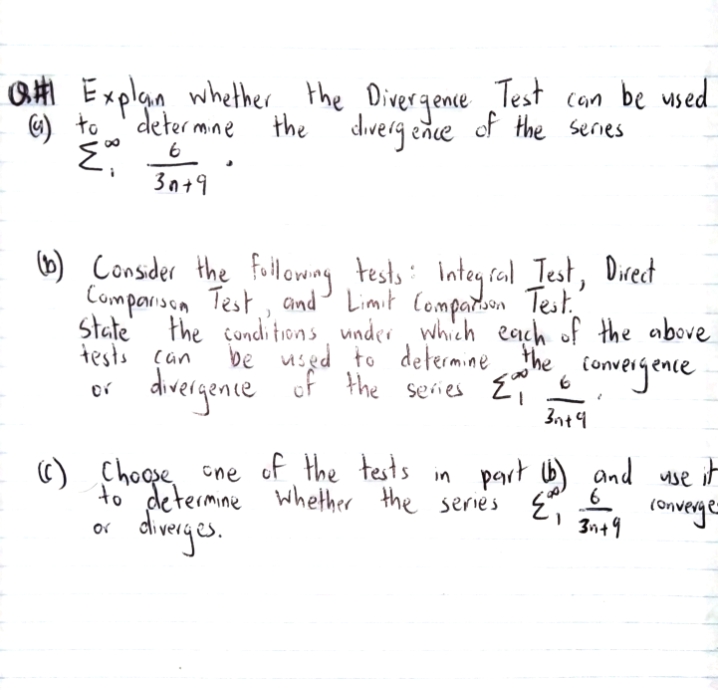 Q#1 Explain whether the Divergence Test can be used
(a) to determine the divergence of the series
Σ₁^∞ 6/(3n+9) .
(b) Consider the following tests: Integral Test, Direct
Comparison Test, and Limit Comparison Test.
State the conditions under which each of the above
tests can be used to determine the convergence
or divergence of the series Σ₁^∞ 6/(3n+9) .
(c) Choose one of the tests in part (b) and use it
to determine whether the series Σ₁^∞ 6/(3n+9) converge
or diverges.